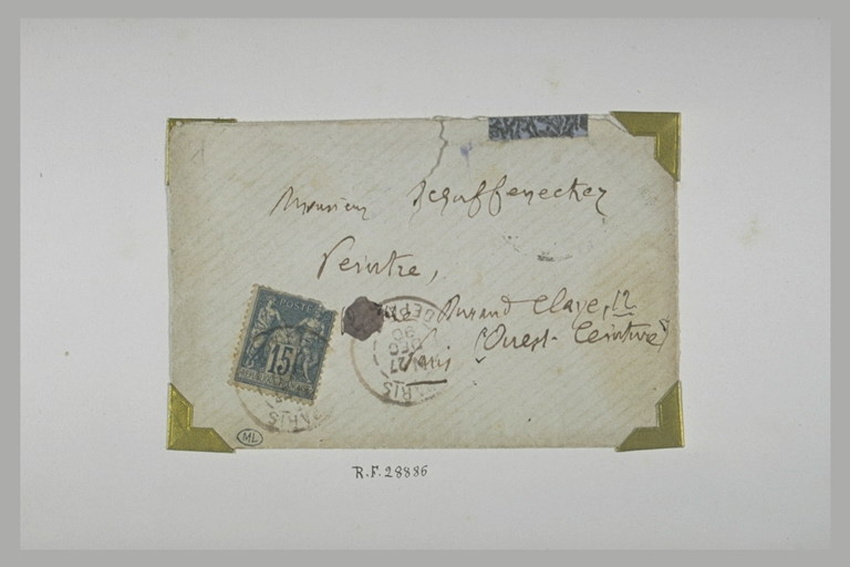 Monsieur Schuffenecker
Peintre,
Durand Claye, 12
Paris (Ouest-Ceinture)
POSTE
15
PARIS
27
DEC
90
PARIS
ML
R.F.28886